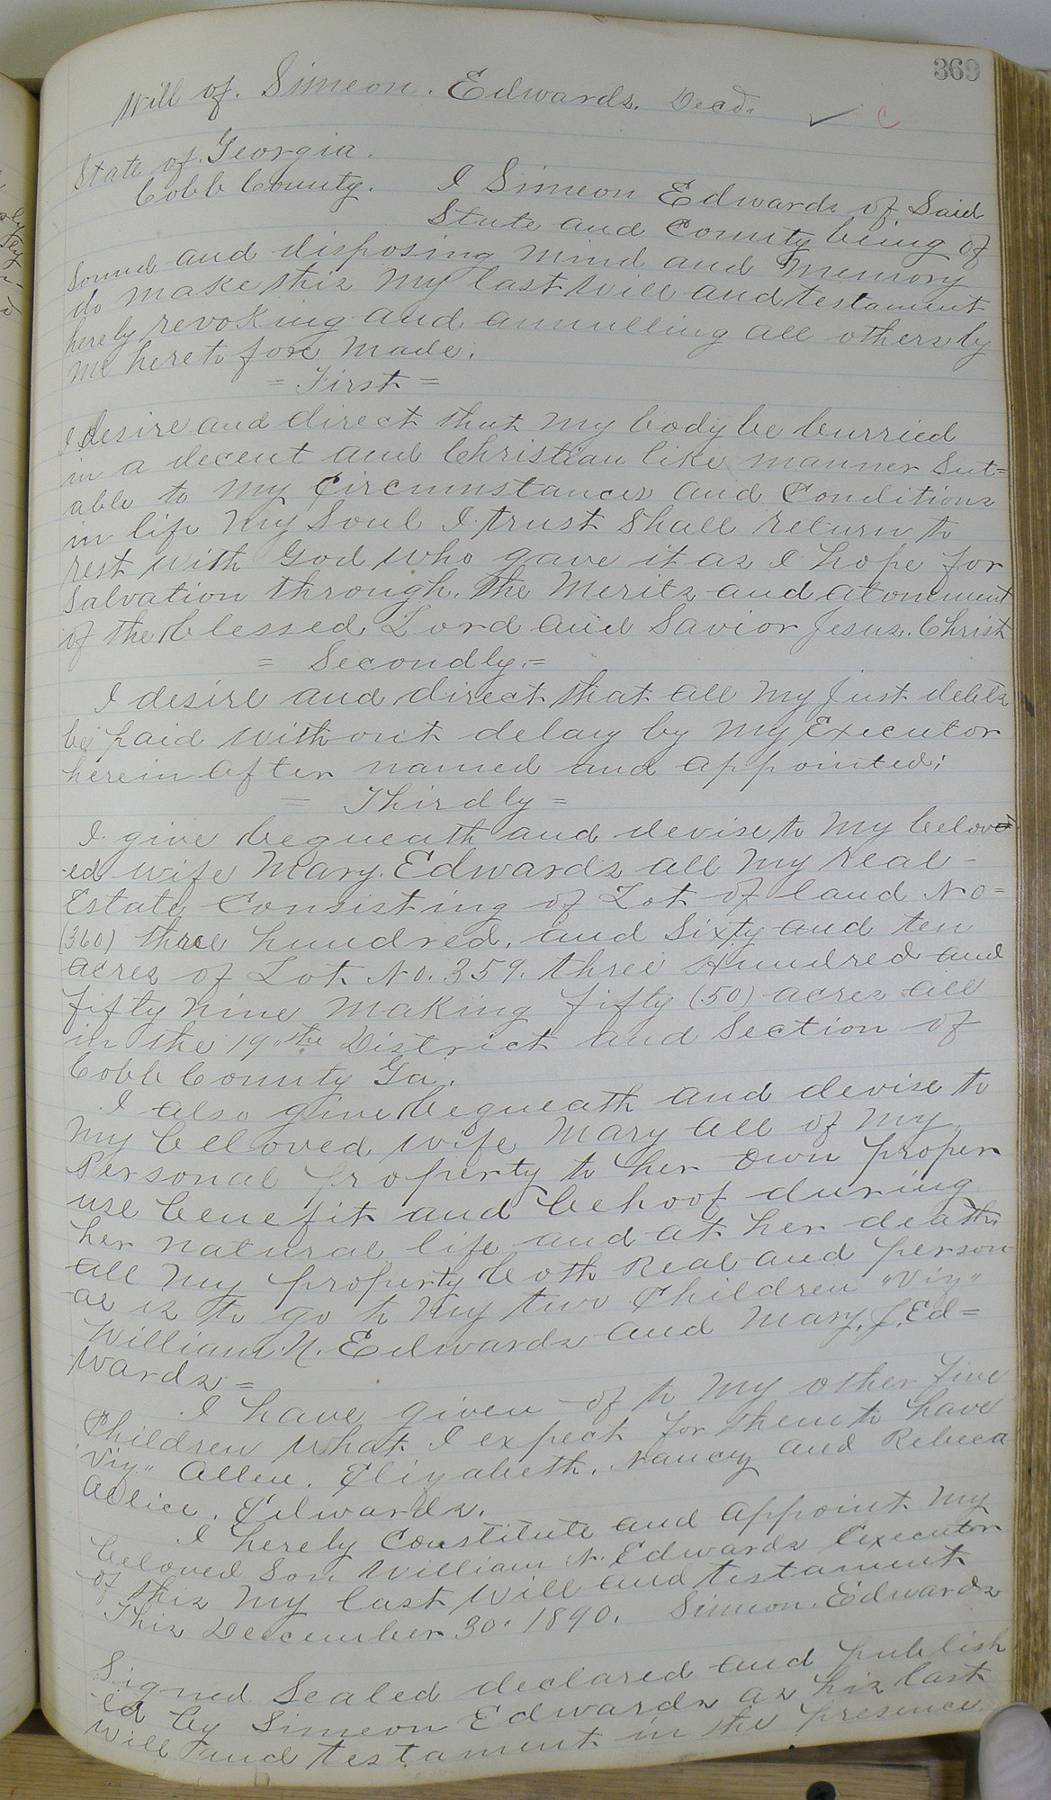 369
Will of. Simeon. Edwards. Decd.
State of Georgia.
Cobb County. I Simeon Edwards of Said
State and County being of
Sound and disposing mind and memory
do make this my last will and testament
hereby revoking and annulling all others by
me heretofore made.
= First =
I desire and direct that my body be burried
in a decent and Christian like manner Sut=
able to my Circumstances and Conditions
in life my Soul I trust Shall return to
rest with God who gave it as I hope for
Salvation through. the Merits and atonement
of the blessed Lord and Savior Jesus. Christ
= Secondly. =
I desire and direct that all my just debts
be paid without delay by my Executor
herein after named and appointed;
= Thirdly =
I give bequeath and devise to my belov
ed wife Mary. Edwards all my real-
Estate Consisting of Lot of land No=
(360) three hundred. and Sixty and ten
acres of Lot No. 359. three Hundred and
fifty nine making fifty (50) acres all
in the 19the District and Section of
Cobb County Ga.
I also give bequeath and devise to
my beloved wife Mary all of my
Personal property to her own proper
use benefit and behoof during
her natural life and at her death
all my property both Real and person
al is to go to my two Children "Viz"
William N. Edwards and Mary. J. Ed=
wards =
I have given of to my other five
Children what I expect for them to have
"Viz" Allen. Elizabeth. Nancy and Rebeca
Allice. Edwards.
I hereby Constitute and appoint my
beloved Son William N. Edwards Executor
of this my last will and testament
This December 30. 1890. Simeon. Edwards
Signed Sealed declared and publish
ed by Simeon Edwards as his last
will and testament in the presence